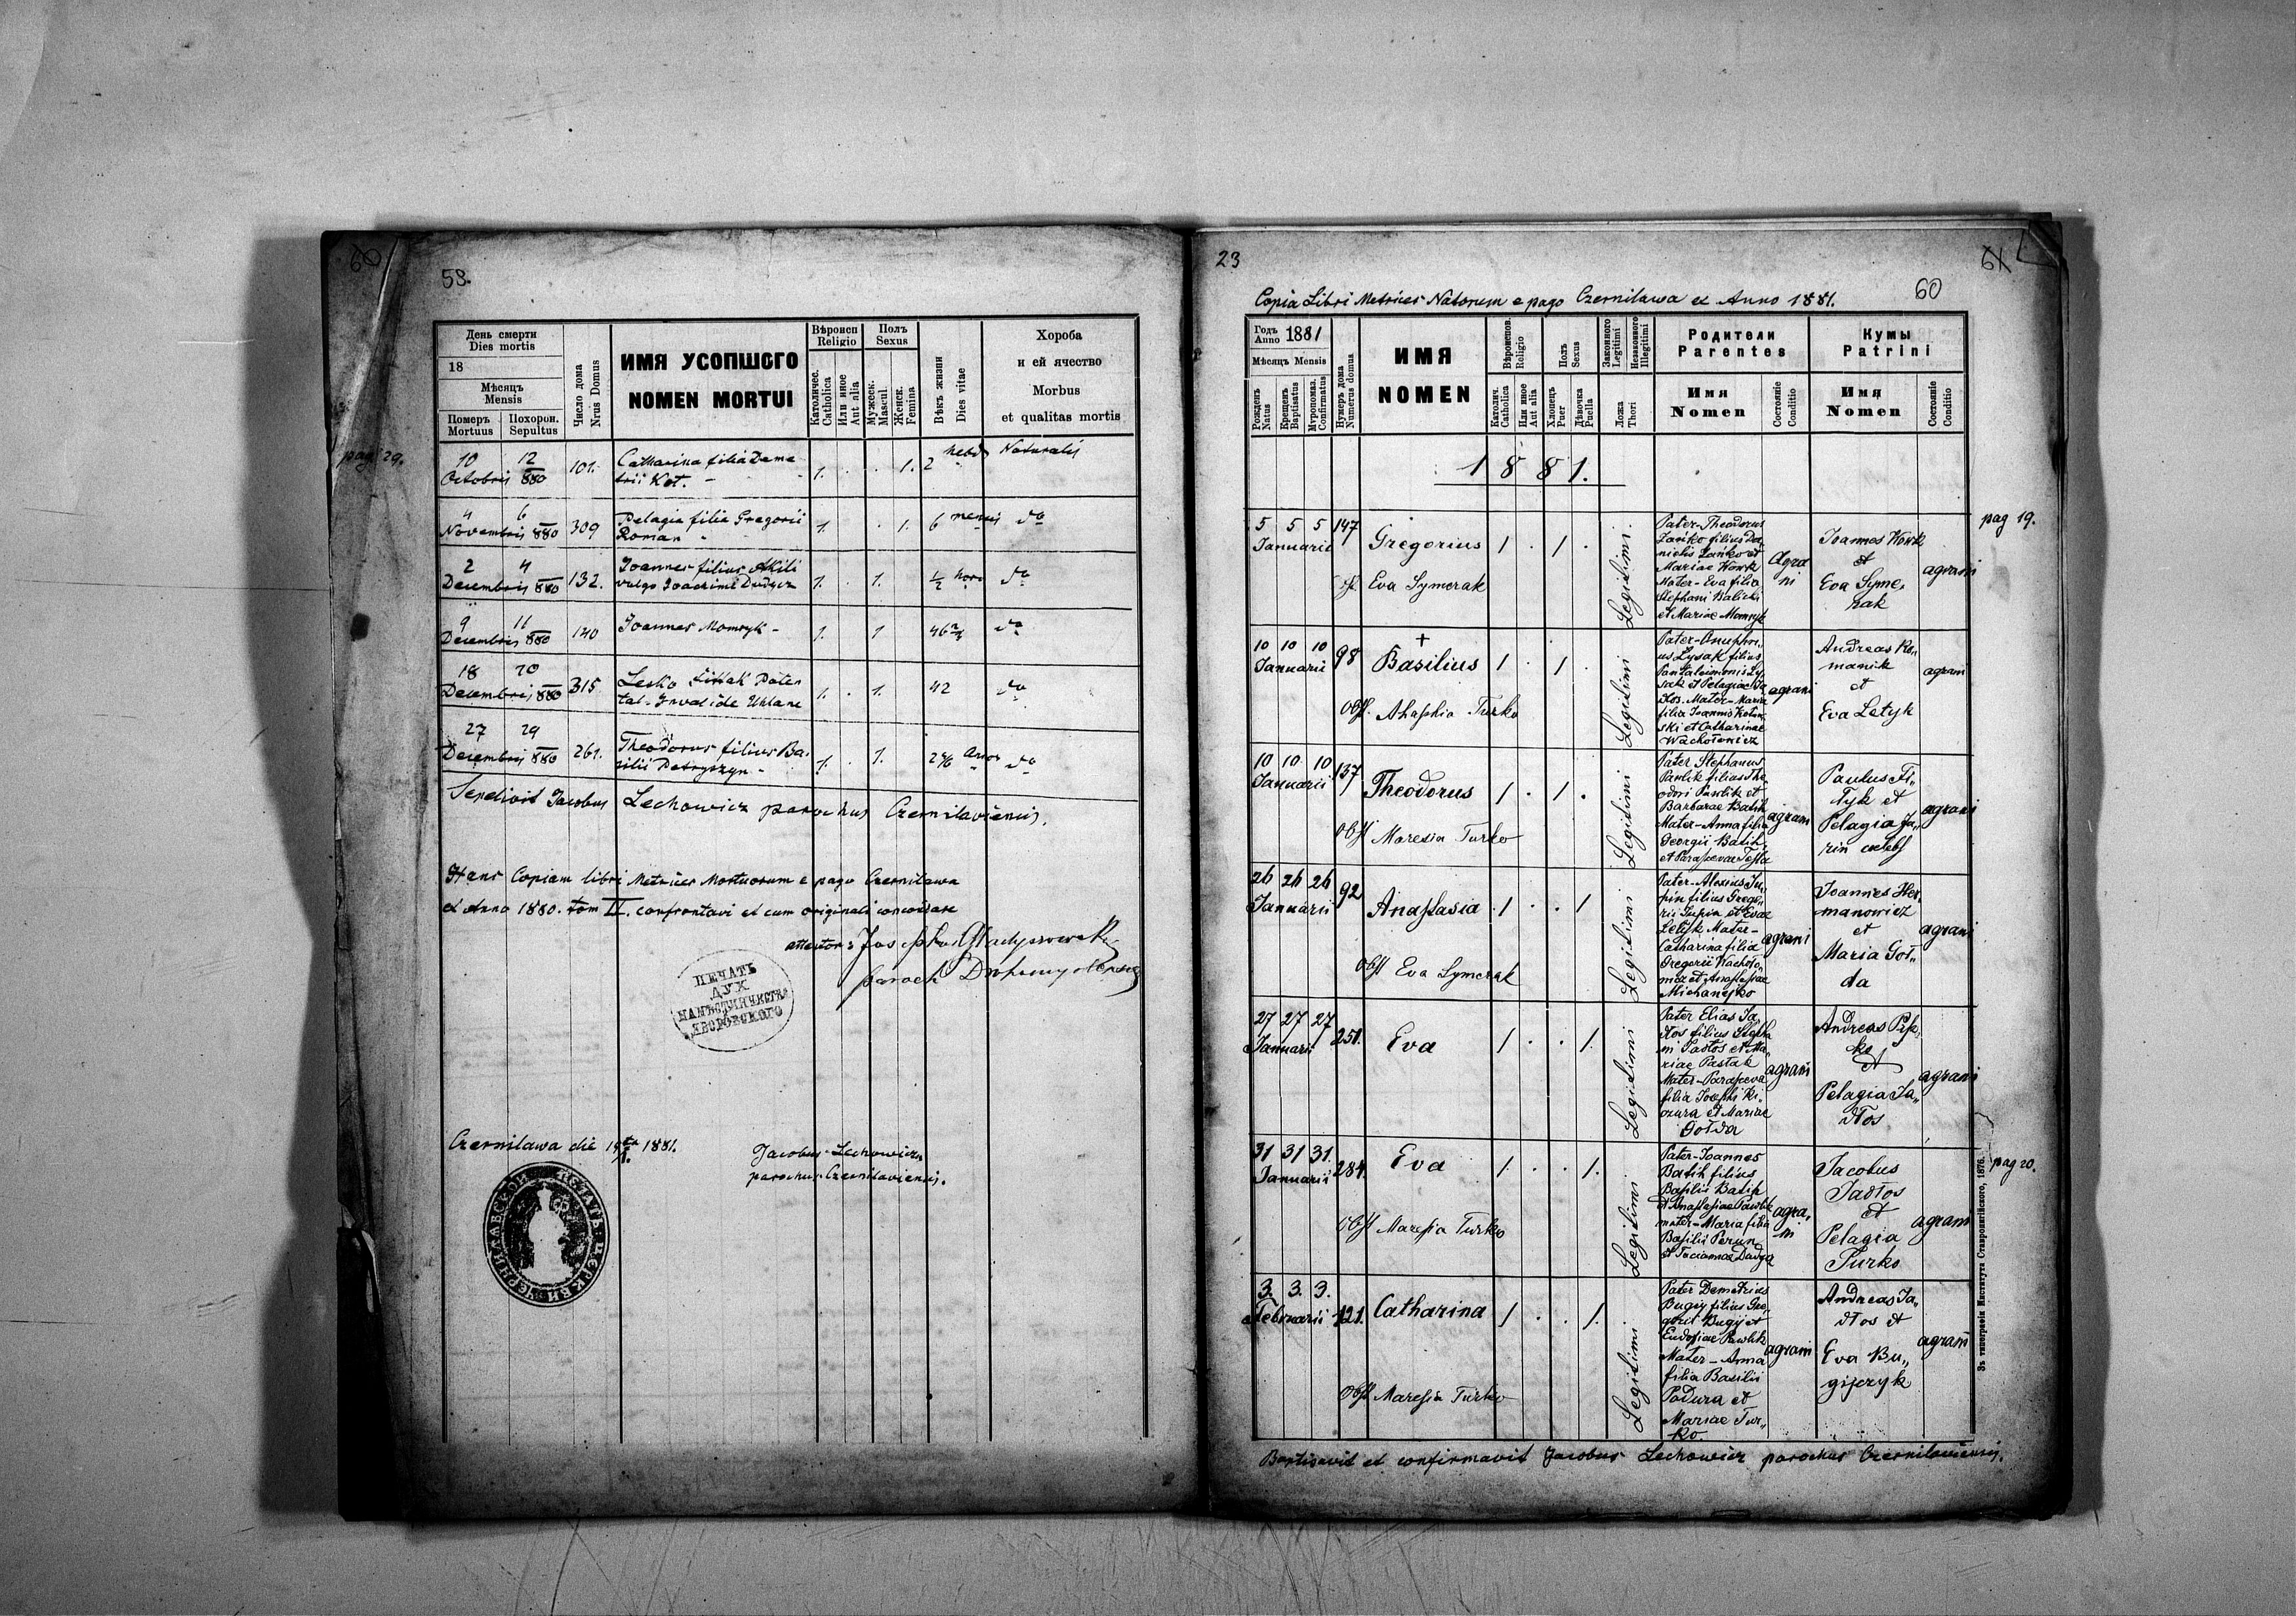 60
53.
День смерти
Dies mortis
18
Мѣсяцъ
Mensis
Померъ
Mortuus
Похорон.
Sepultus
Число дома
Nrus Domus
ИМЯ УСОПШОГО
NOMEN MORTUI
Вѣроисп
Religio
Католичес.
Catholica
Или иное
Aut alia
Полъ
Sexus
Мужеск.
Mascul.
Женск.
Femina
Вѣкъ жизни
Dies vitae
Хороба
и ей ячество
Morbus
et qualitas mortis
pag 29.
10 12 Catharina filia Deme
Octobris 880 101. trii Kot. 1. . . 1. 2 hebd Naturalis
4 6 Pelagia filia Gregorii
Novembris 880 309 Roman 1. . 1. 6 mensis do
2 4 Joannes filius
Decembris 880 132. vulgo Joachimi 1. . 1. ½ hora do
9 11
Decembris 880 140 Joannes Momryk 1. 1 46 do
18 20 Lesko
Decembris 880 315 tal-Invalide Uhlane 1. . 1. 42 do
27 29 Theodorus filius Ba,
Decembris 880 261. silii Petryszyn 1. . 1. Anor do
Sepelivit Jacobus Lechowicz parochus Czernilaviensis.
Hanc Copiam libri Metrices Mortuorum e pago Czernilawa
et Anno 1880. tom II. confrontavi et cum originali concordare
attestor: Josephus
paroch
ПЕЧАТЬ
ДУХ
НАМѢСТНИЧЕСТВА
ЯВОРОВСКОГО
Czernilawa die 1881.
Jacobus Lechowicz
parochus Czernilaviensis.
23
61
60
Copia Libri Metrices Natorum e pago Czernilawa ex Anno 1881.
Годъ
Anno 1881
Мѣсяцъ Mensis
Рожденъ
Natus
Крещенъ
Baptisatus
Мѵропомаз.
Confirmatus
Нумеръ дома
Numerus domus
ИМЯ
NOMEN
Вѣроисповѣд.
Religio
Католич.
Catholica
Или иное
Aut alia
Полъ
Sexus
Хлопецъ
Puer
Дѣвочка
Puella
Законного
Legitimi
Незаконного
Illegitimi
Ложа
Thori
Родители
Parentes
Имя
Nomen
Состояніе
Conditio
Кумы
Patrini
Имя
Nomen
Состояніе
Conditio
1881.
pag 19.
5 5 5 147
Januarii
Gregorius 1 . 1 .
Eva Symczak
Legitimi
Pater-Theodorus
Lańko filius Da,
nielis Lańko et
Mariae Wowk
Mater-Eva filia
Stephani Balicki
et Mariae Momryk
Agra
ni
Joannes Wowk
et
Eva Syme,
zak
agrani
10 10 10 98
Januarii
+
Basilius 1 . 1 .
Obst. Ahaphia Turko
Legitimi
Pater-Onuphri,
us Lysak filius
Pantaleimonis Ly
sak et Pelagiae Ja
dłos. Mater-Maria
filia Joannis
ski et Catharinae
agrani
Andreas Ro,,
manik
et
Eva Letyk
agrani
10 10 10 137
Januarii
Theodorus 1 . 1 .
Obst Maresia Turko
Legitimi
Pater Stephanus
Pawlik filius The,
odori Pawlik et
Barbarae Batih
Mater-Anna filia
Georgii Batih,
et Parascevae Tesla
agrani
Paulus
tyk et
Pelagia
agrani
26 26 26 92
Januarii
Anastasia 1 . . 1
Obst Eva Symczak
Legitimi
Pater-Alexius
pin filius Grego,,
rii et Evae
Letyk Mater-
Catharina filia
Gregorii
et Anastasiae
agrani
Joannes Her,
manowicz
et
Maria Goł,,
da
agrani
27 27 27 251.
Januarii
Eva 1 . . 1.
Legitimi
Pater Elias Ja,
dłos filius Stepha
ni Jadłos et Ma,
riae
Mater-Parasceva
filia Josephi Ki,
czura et Mariae
Gołda
agrani
Andreas
et
Pelagia Ja,,
dłos
agrani
pag 20.
31 31 31. 284.
Januarii
Eva 1. . . 1.
Obst Maresia Turko
Legitimi
Pater-Joannes
Batih filius
Basilii Batih
et Anastasiae Pawlik
mater-Maria filia
Basilii Perun
agra,
ni
Jacobus
Jadłos
et
Pelagia
Turko
agrani
3. 3. 3. 121.
Februarii
Catharina 1 . . 1.
Obst Maresia Turko
Legitimi
Pater Demetrius
Bugiy filius Gre,,
gorii Bugij et
Eudosiae Pawlik
Mater-Anna
filia Basilii
Padura et
Mariae Tur,,
ko
agrani
Andreas Ja,,
dłos et
Eva Bu,,
gijczyk
agrani
Зъ типографіи Института Ставропигійского, 1876.
Baptisavit et confirmavit Jacobus Lechowicz parochus Czernilaviensis.